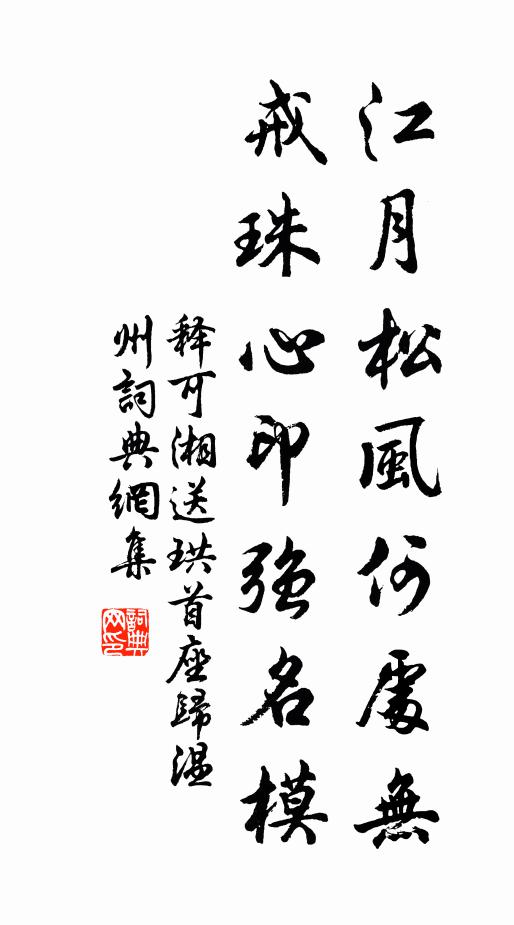 江月松風何處無
戒珠心印強名模
釋可湘送珙首座歸溫
州詞典網集
詞典網印